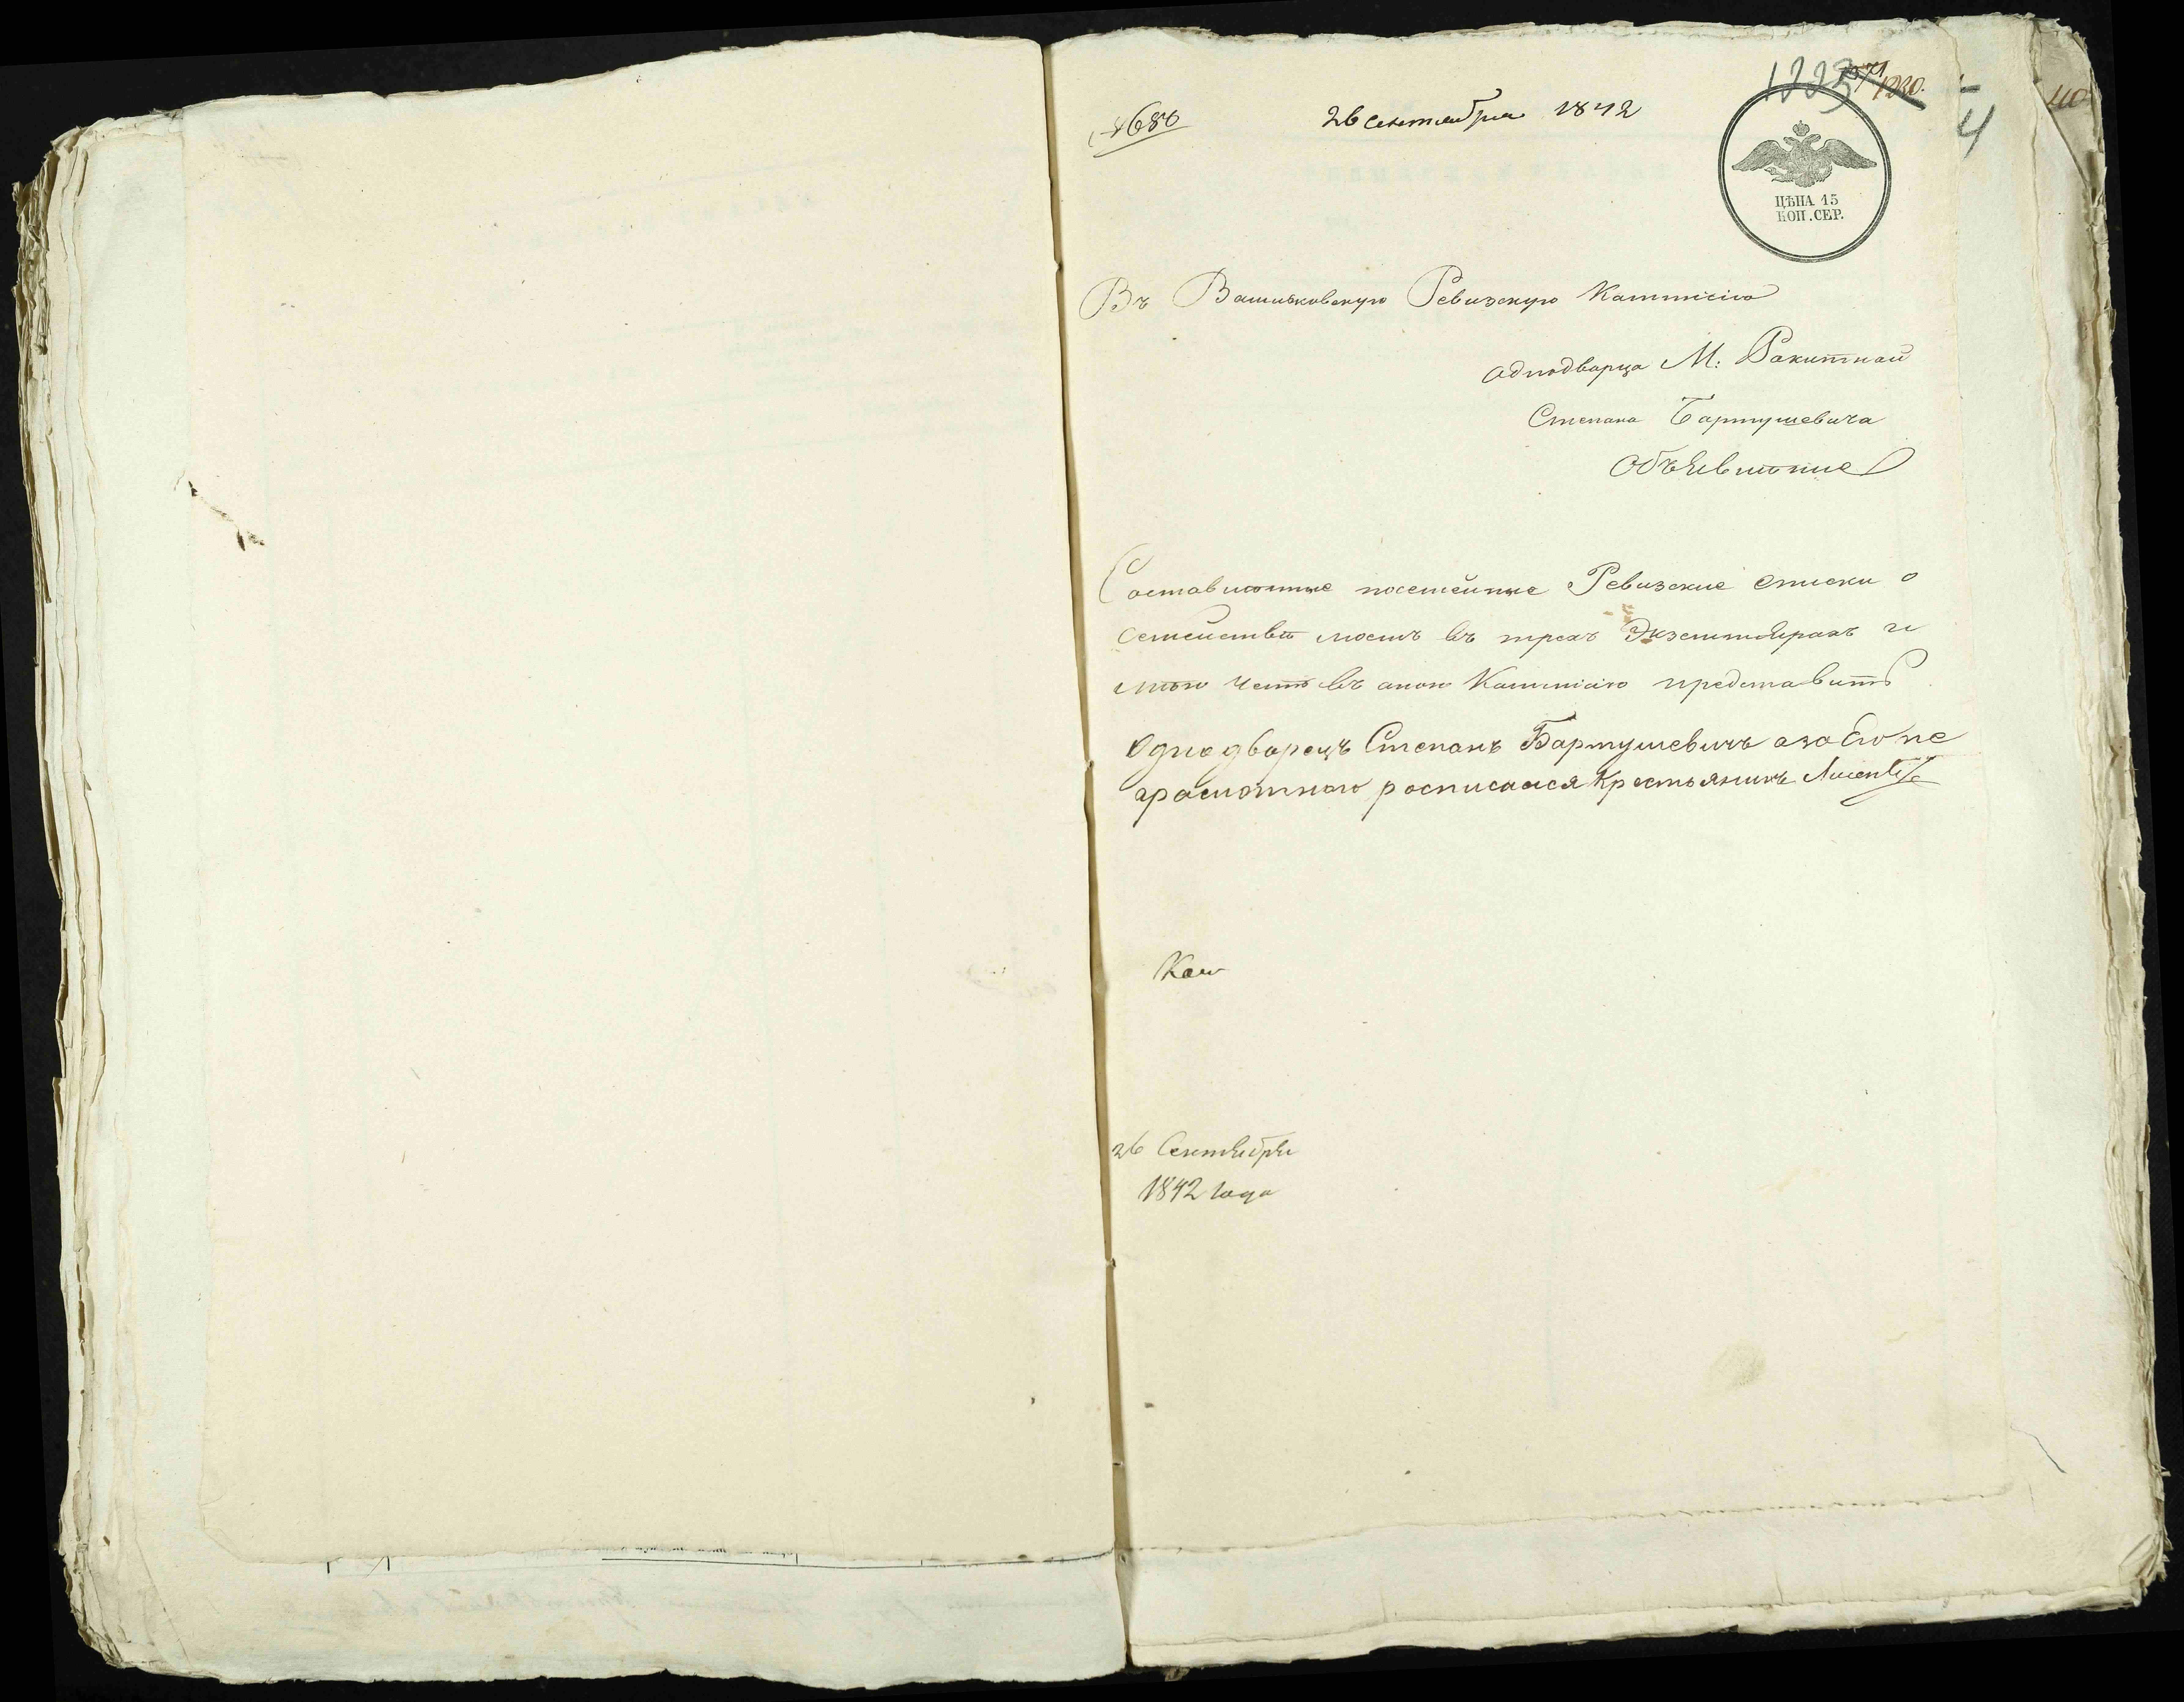 26 Сентября 1842
ЦѢНА 15
КОП. СЕР.
Въ Васильковскую Ревизскую Коммисію
Однодворца М: Ракитной
Степана Бартушевича
Объявленіе
Составленные посемейные Ревизские списки о
семействе моемъ въ трехъ Экземплярахъ и
мею честь въ оною Коммисію представить
Однодворецъ Степанъ Бартушевичъ а за Его не
грамотного росписался Крестьянинъ
26 Сентября
1842 Года
4